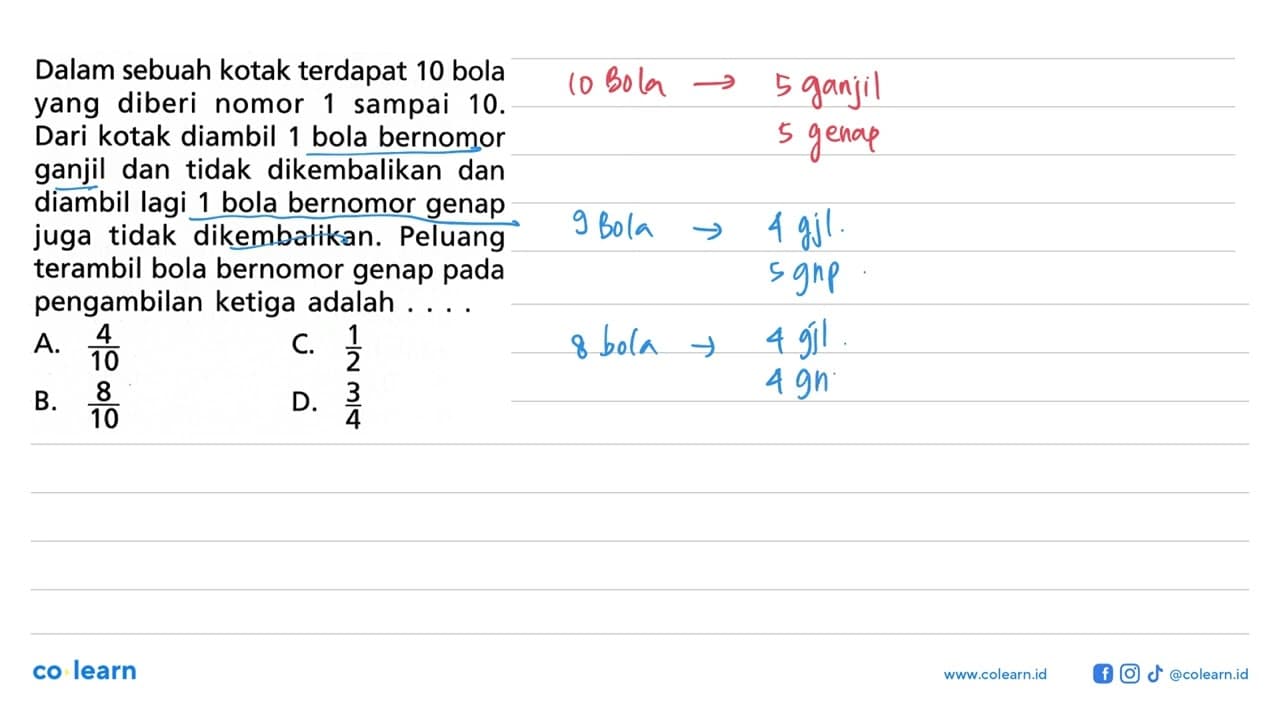 Dalam sebuah kotak terdapat 10 bola
yang diberi nomor 1 sampai 10.
Dari kotak diambil 1 bola bernomor
ganjil dan tidak dikembalikan dan
diambil lagi 1 bola bernomor genap
juga tidak dikembalikan. Peluang
terambil bola bernomor genap pada
pengambilan ketiga adalah . . . .
A. 4/10
C. 1/2
B. 8/10
D. 3/4
10 Bola → 5 ganjil
5 genap
9 Bola → 4 gjl.
5 gnp.
8 bola → 4 gjl.
4 gn
co learn
www.colearn.id
@colearn.id